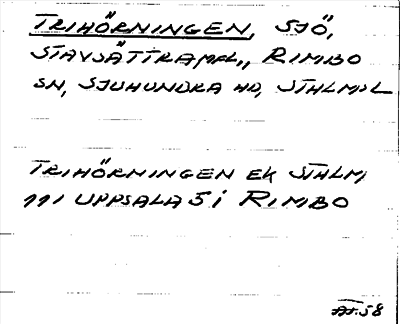 TRIHÖRNINGEN, SJÖ,
STAVSÄTTRA MFL., RIMBO
SN, SJUHUNDRA HD, STHLMS L
TRIHÖRNINGEN EK STHLM
111 UPPSALA 5 i RIMBO
ÄT.58